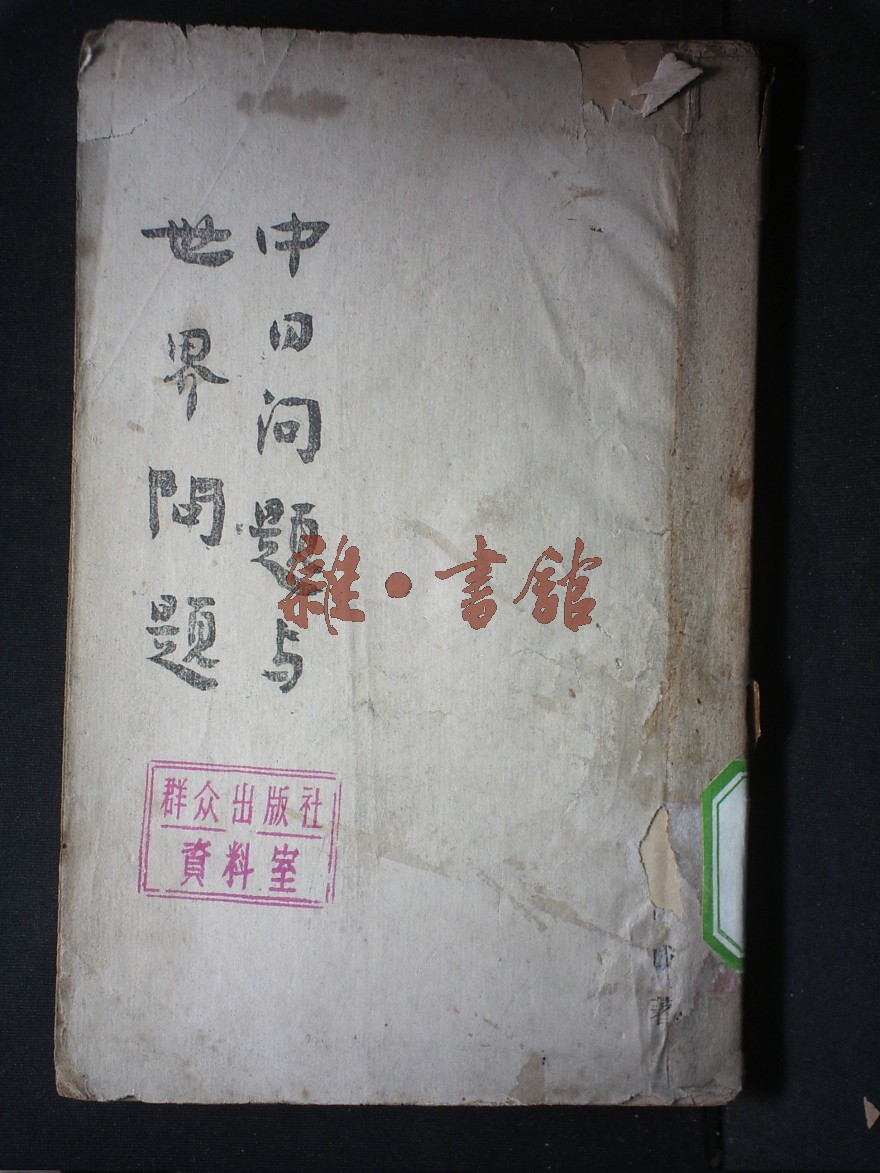 中日问题与
世界問題
雜·書館
群众出版社
資料室
著